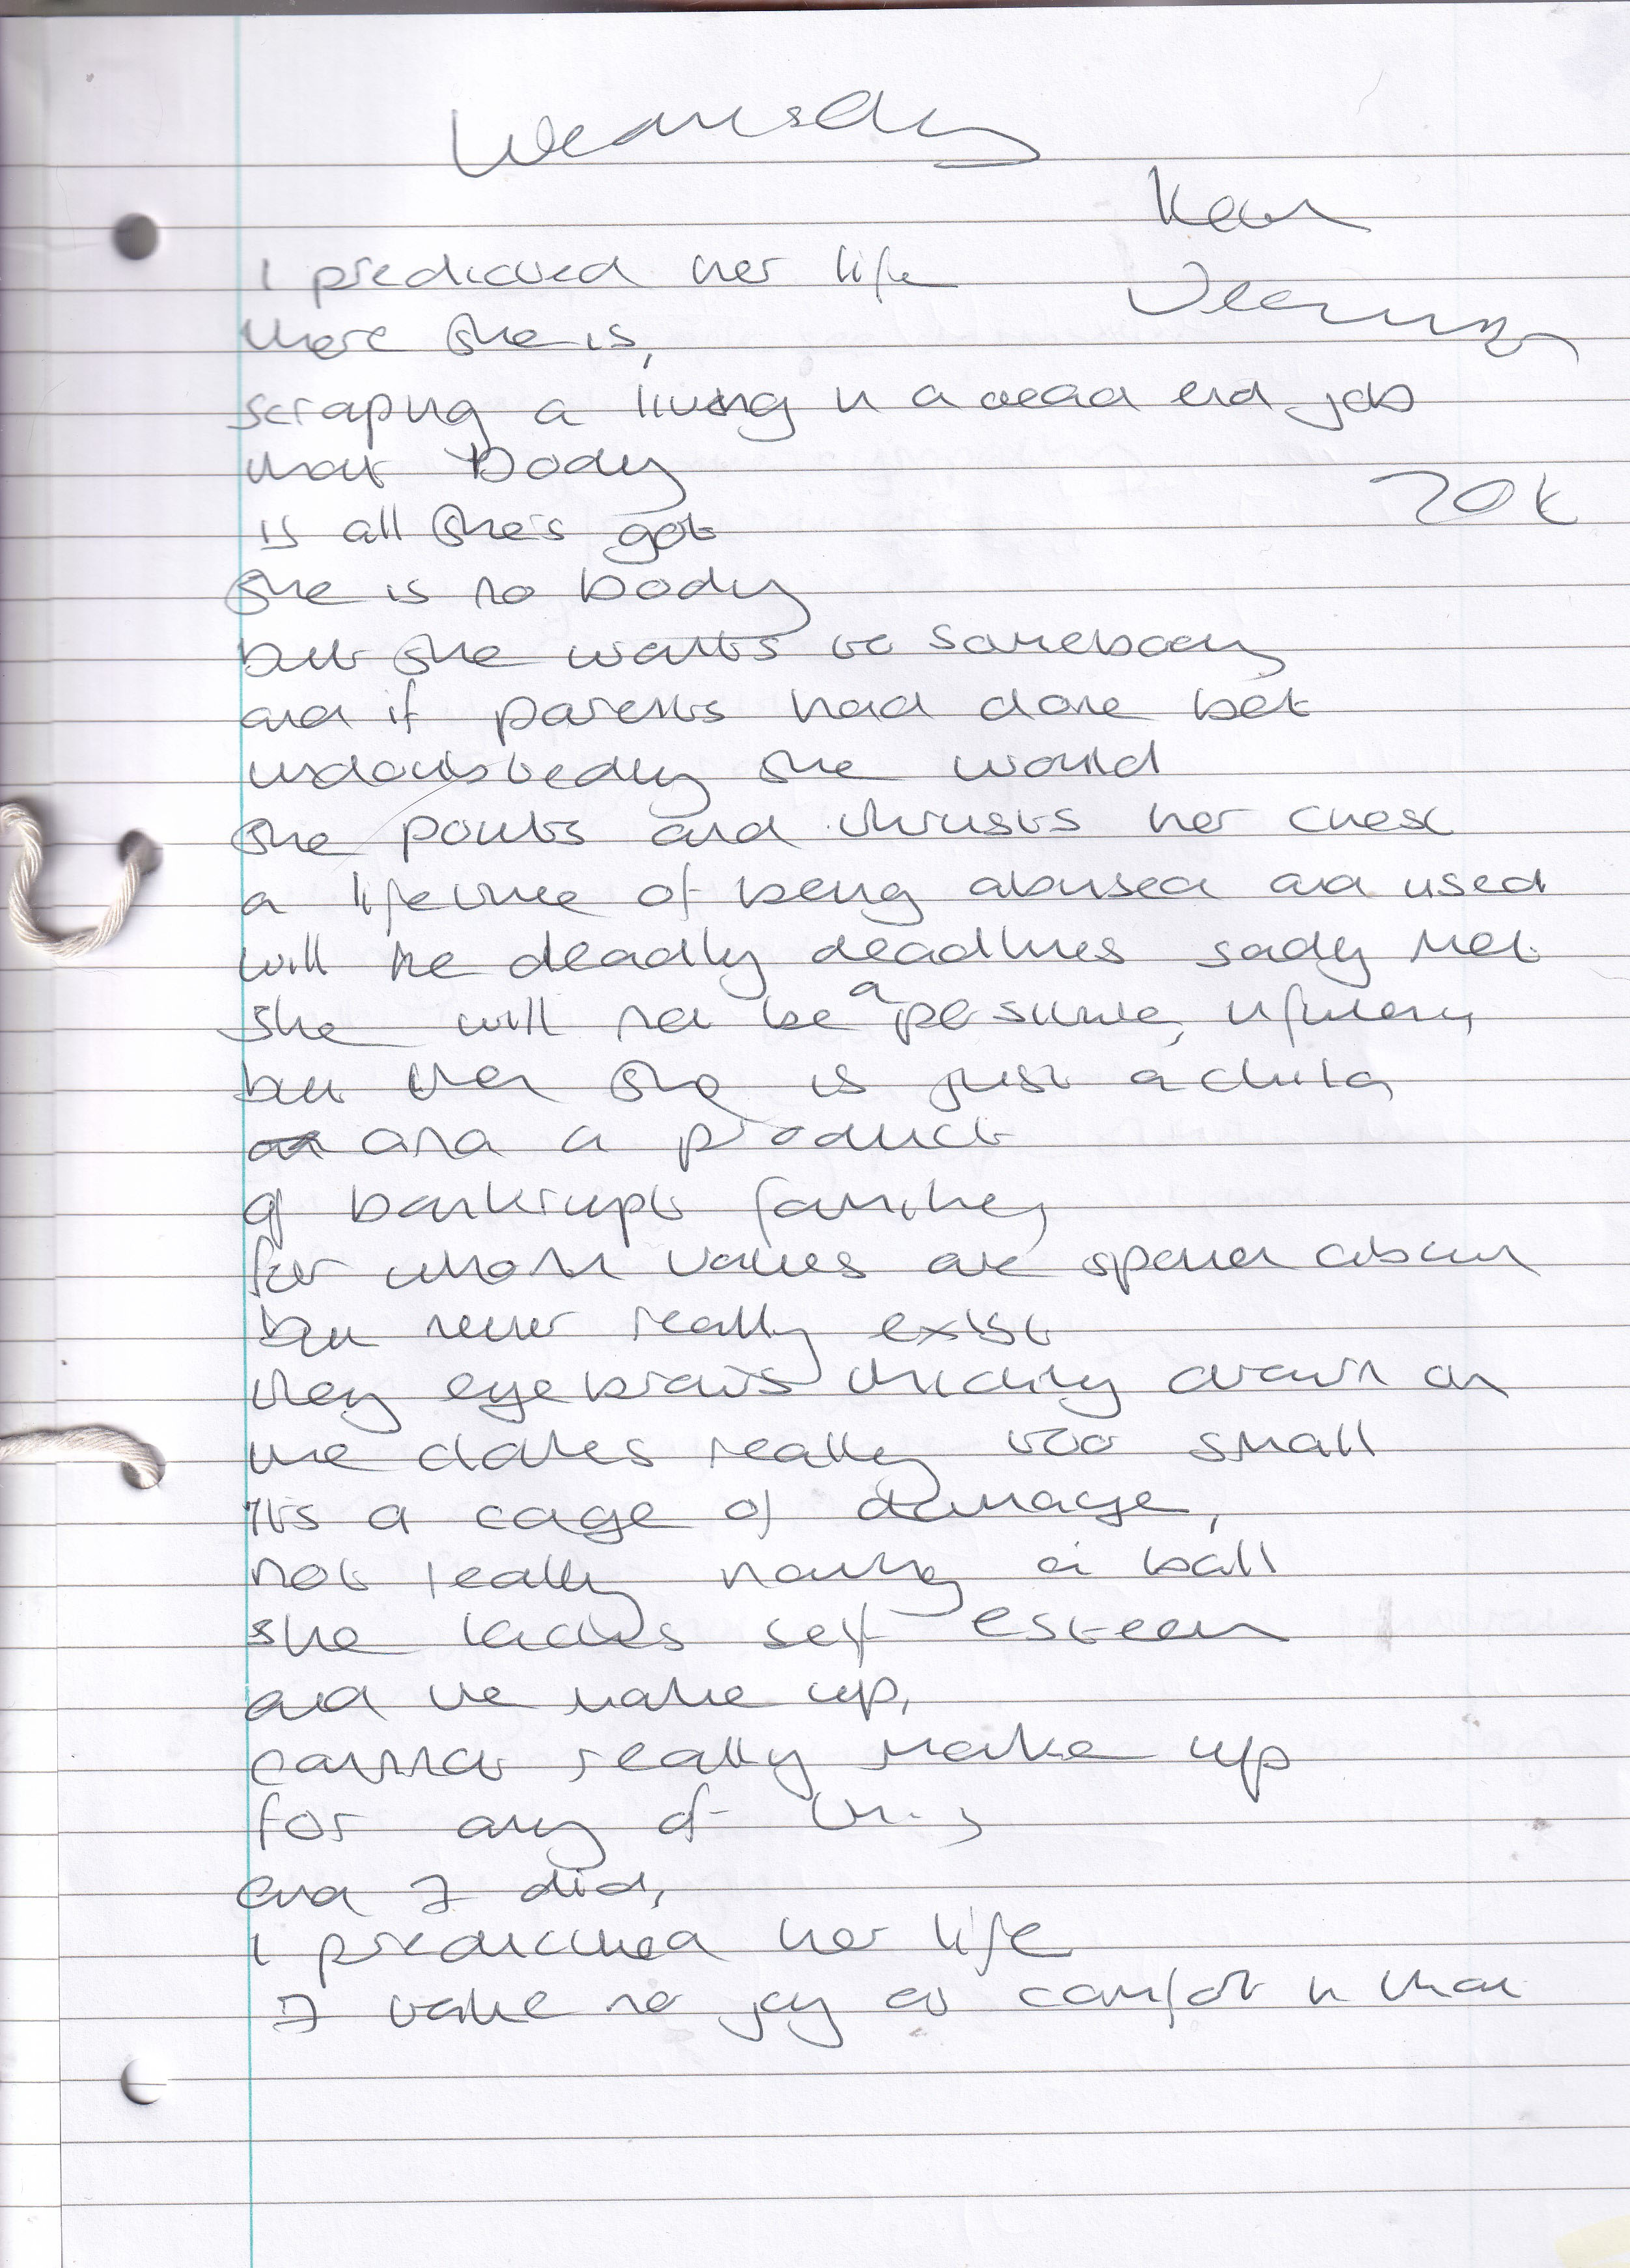 Wednesday
I predicted her life
there she is,
scraping a living in a dead end job
that body
20k
is all she's got
she is no body
but she wants to somebody
and if parents had done bet
undoubtedly she would
she pouts and thrusts her chest
a lifetime of being abused and used
will be deadly deadlines sadly met
she will not be a positive,
but then she is just a child,
and a product
of bankrupt families
for whom values are spoken about
but never really exist
they eyebrows thickly drawn on
the clothes really too small
It's a cage of damage,
not really having a ball
she lacks self esteem
and the make up,
cannot really make up
for any of this
and I did,
I predicted her life
I take no joy or comfort in that